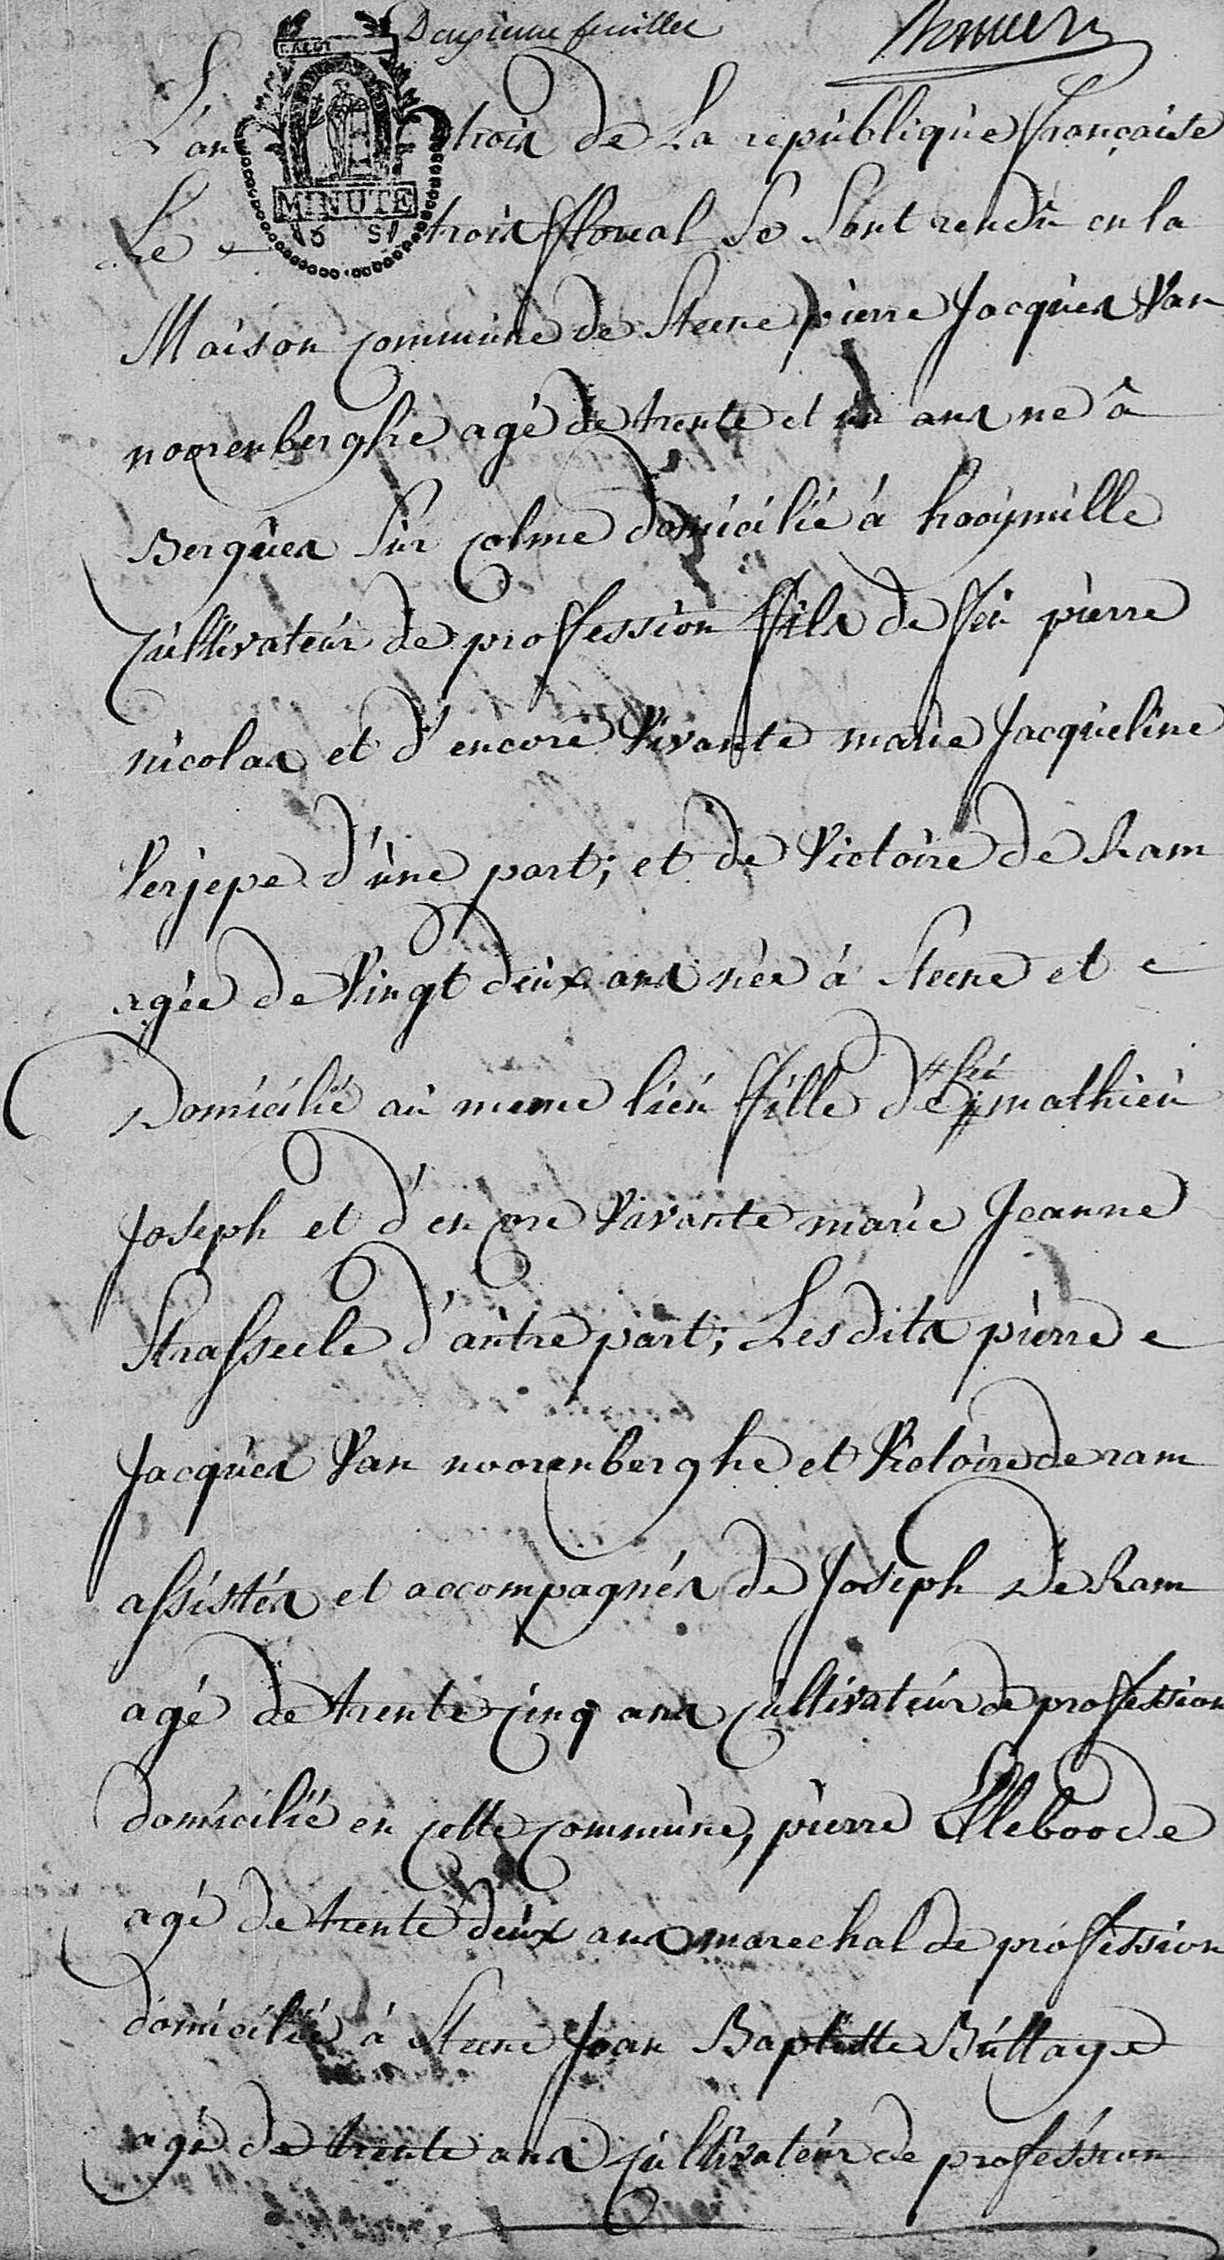 Deuxieme feuillet
L'an trois de La république française
Le trois floreal se sont rendu en la
Maison commune de Steene pierre Jacques Van
noorenberghe agé de trente et un ans né â
Bergues sur colme domicilié á hooymille
cultivateur de proffession fils de feu pierre
nicolas et d'encore Vivante marie Jacqueline
Verjepe d'une part; et de Victoire de Ram
agée de Vingt deux ans née á Steene et
Domicilié au meme lieu fille de feu mathieu
Joseph et d'encore Vivante marie Jeanne
Strasseele d'autre part; Lesdits pierre
Jacques Van noorenberghe et Victoire de ram
assistés et accompagnés de Joseph De Ram
agé de trente cinq ans cultivateur de proffession
domicilié en cette commune, pierre Elleboode
agé de trente deux ans marechal de proffession
domicilié á Steene Jean Baptiste Buttaye
agé de trente ans cultivateur de profession
MINUTE